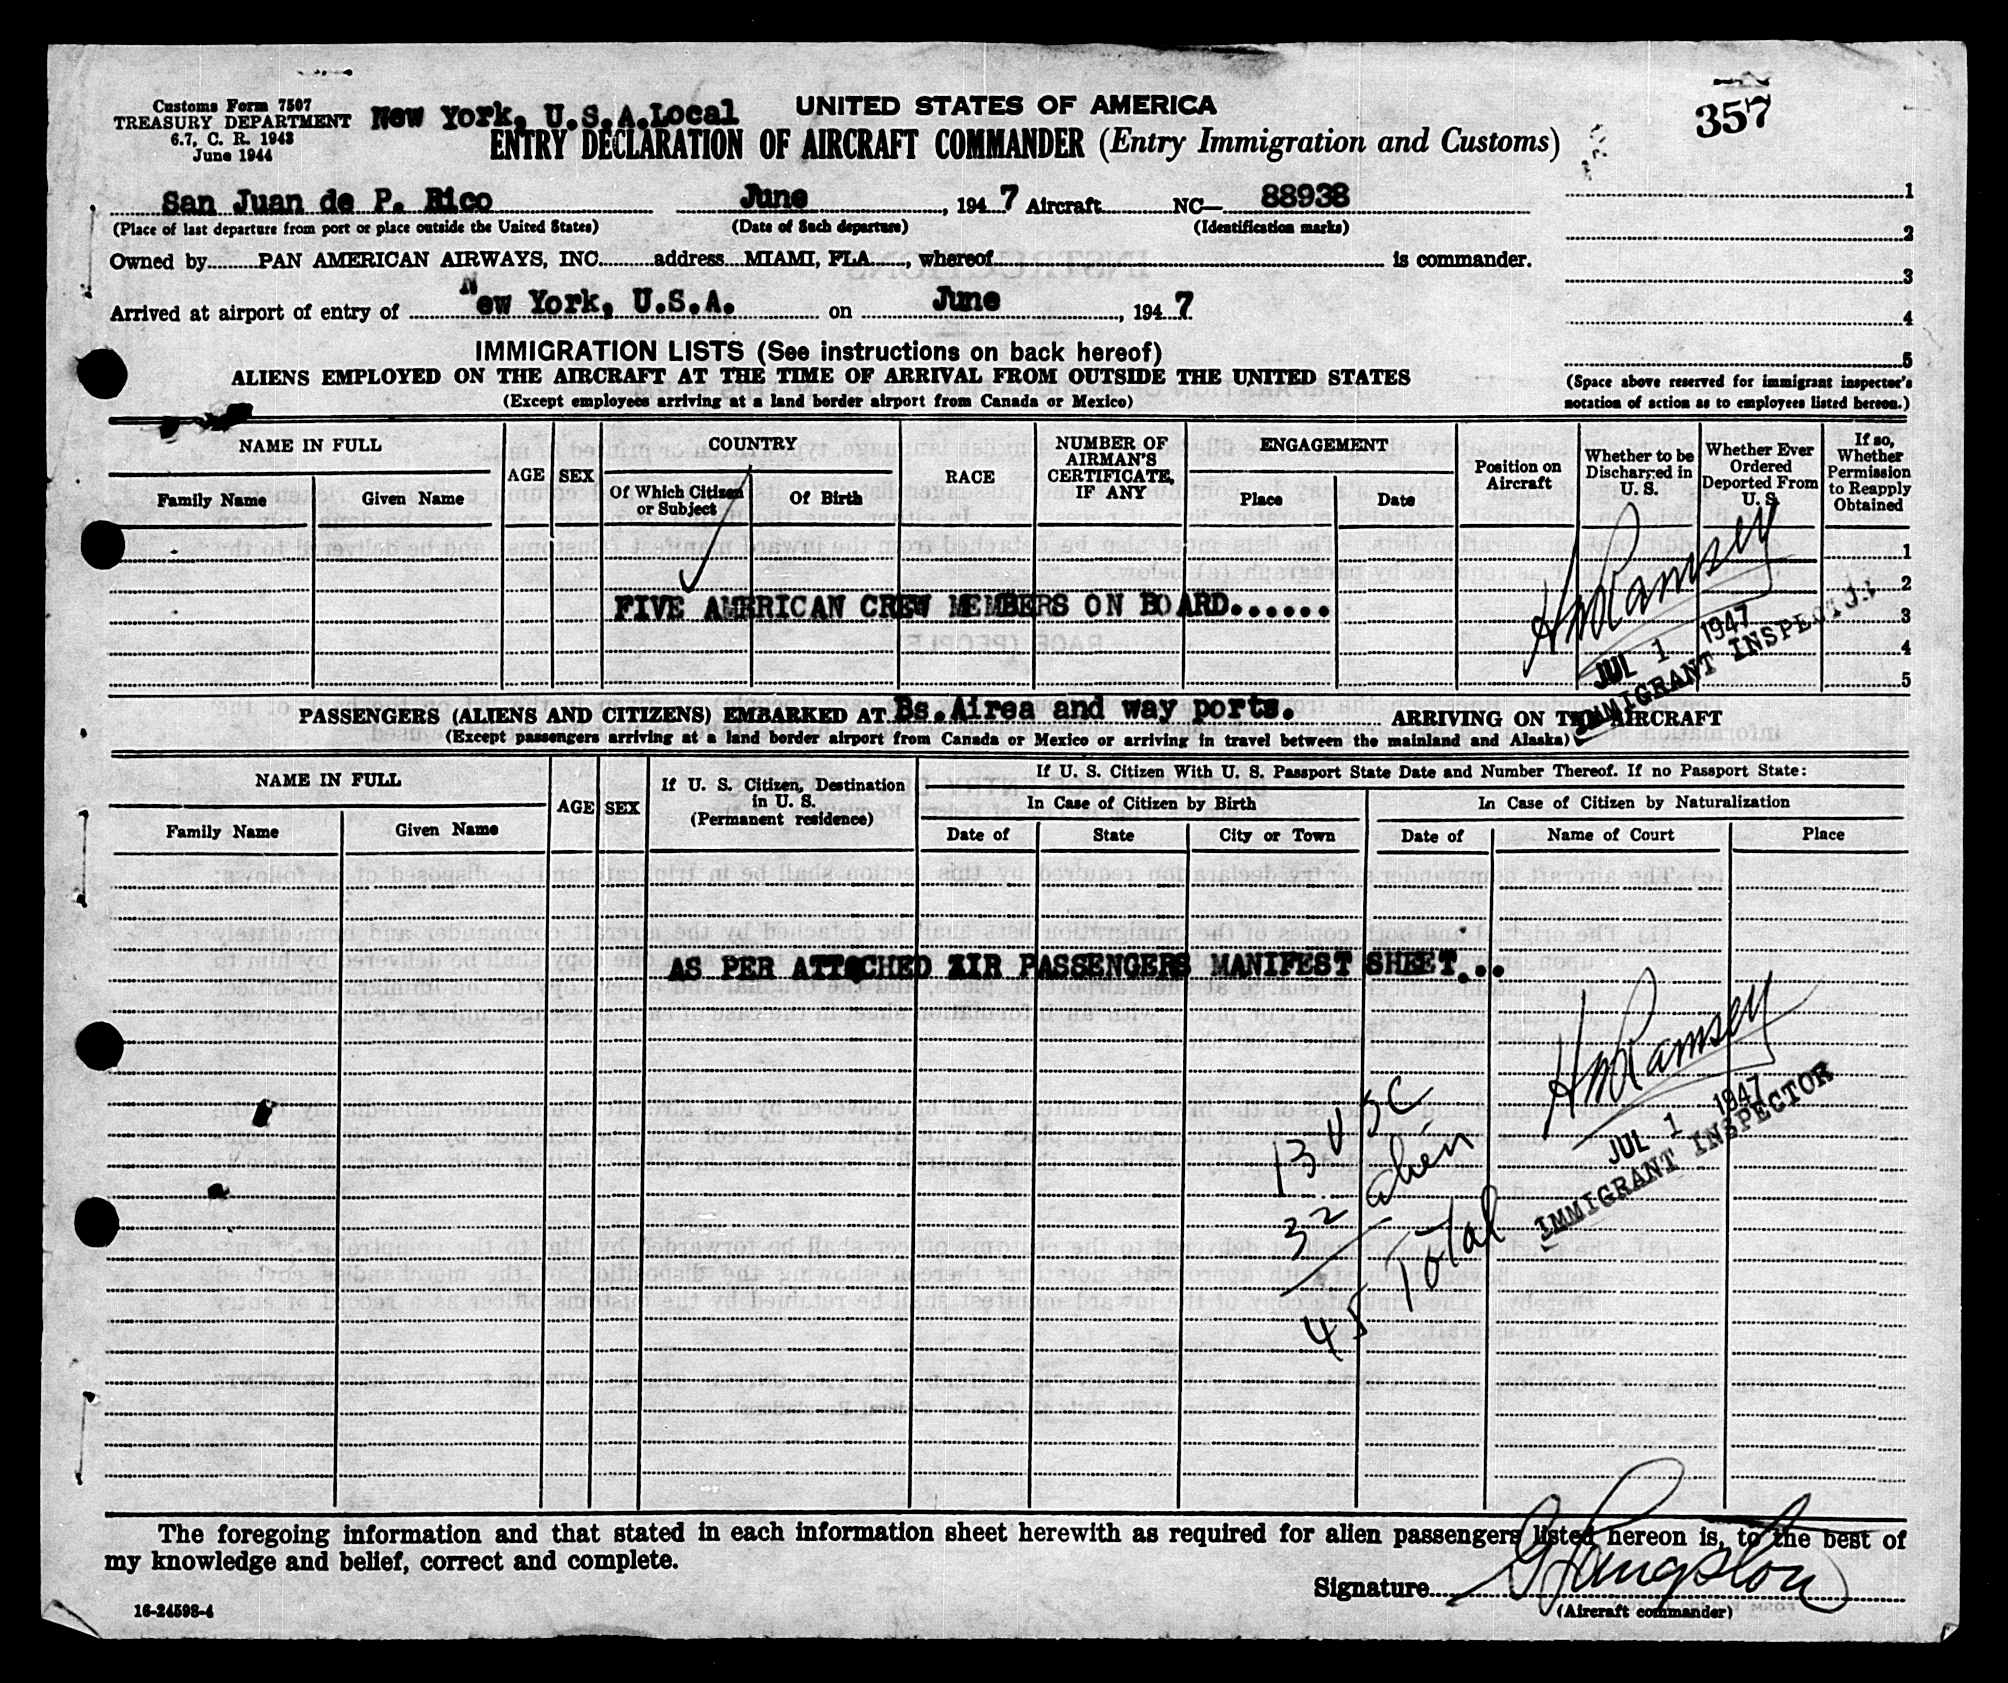 Customs Form 7507
TREASURY DEPARTMENT
6.7, C. R. 1943
June 1944
New York, U.S.A. Local
UNITED STATES OF AMERICA
357
ENTRY DECLARATION OF AIRCRAFT COMMANDER (Entry Immigration and Customs)
San Juan de P. Rico June, 1947 Aircraft NC— 88938
(Place of last departure from port or place outside the United States) (Date of Such departure) (Identification marks)
Owned by PAN AMERICAN AIRWAYS, INC. address MIAMI, FLA., whereof is commander.
Arrived at airport of entry of New York, U.S.A. on June, 1947
1
2
3
4
5
(Space above reserved for immigrant inspector's
notation of action as to employees listed hereon.)
IMMIGRATION LISTS (See instructions on back hereof)
ALIENS EMPLOYED ON THE AIRCRAFT AT THE TIME OF ARRIVAL FROM OUTSIDE THE UNITED STATES
(Except employees arriving at a land border airport from Canada or Mexico)
NAME IN FULL
Family Name
Given Name
AGE
SEX
COUNTRY
Of Which Citizen
or Subject
Of Birth
RACE
NUMBER OF
AIRMAN'S
CERTIFICATE,
IF ANY
ENGAGEMENT
Place
Date
Position on
Aircraft
Whether to be
Discharged in
U. S.
Whether Ever
Ordered
Deported From
U. S.
If so,
Whether
Permission
to Reapply
Obtained
1
2
3
4
5
FIVE AMERICAN CREW MEMBERS ON BOARD......
HM Ramsey
JUL 1 1947
IMMIGRANT INSPECTOR
PASSENGERS (ALIENS AND CITIZENS) EMBARKED AT Bs.Airea and way ports. ARRIVING ON THE AIRCRAFT
(Except passengers arriving at a land border airport from Canada or Mexico or arriving in travel between the mainland and Alaska)
NAME IN FULL
Family Name
Given Name
AGE
SEX
If U. S. Citizen, Destination
in U. S.
(Permanent residence)
If U. S. Citizen With U. S. Passport State Date and Number Thereof. If no Passport State:
In Case of Citizen by Birth
Date of
State
City or Town
In Case of Citizen by Naturalization
Date of
Name of Court
Place
AS PER ATTACHED AIR PASSENGERS MANIFEST SHEET...
HM Ramsey
JUL 1 1947
IMMIGRANT INSPECTOR
13 USC
32 alien
45 Total
The foregoing information and that stated in each information sheet herewith as required for alien passengers listed hereon is, to the best of
my knowledge and belief, correct and complete.
Signature G Langston
(Aircraft commander)
16-24598-4